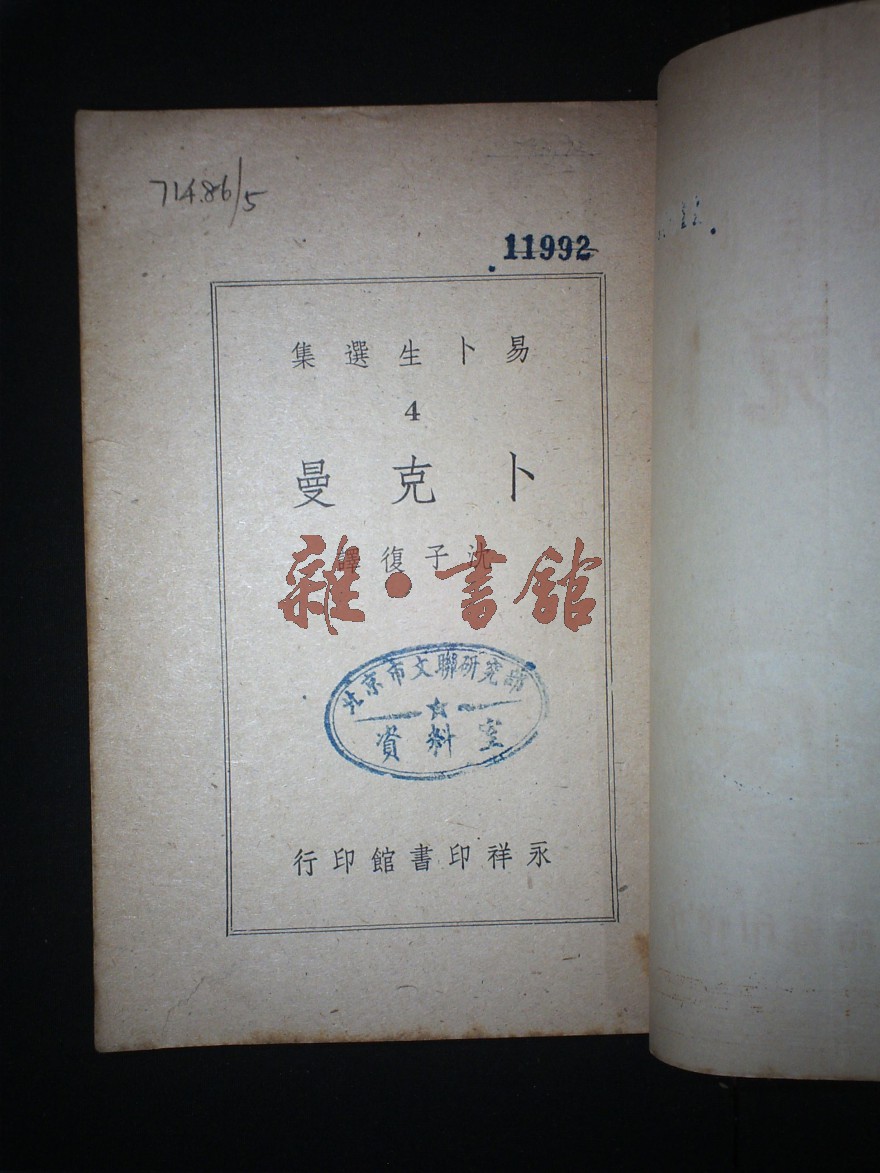 714.86/5
11992
易卜生選集
4
卜克曼
沈子復譯
雜·書館
北京市文聯研究部
資料室
永祥印書館印行